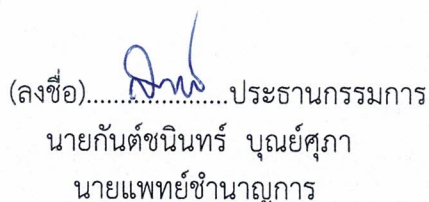 (ลงชื่อ)........................ประธานกรรมการ
นายกันต์ชนินทร์ บุณย์ศุภา
นายแพทย์ชำนาญการ